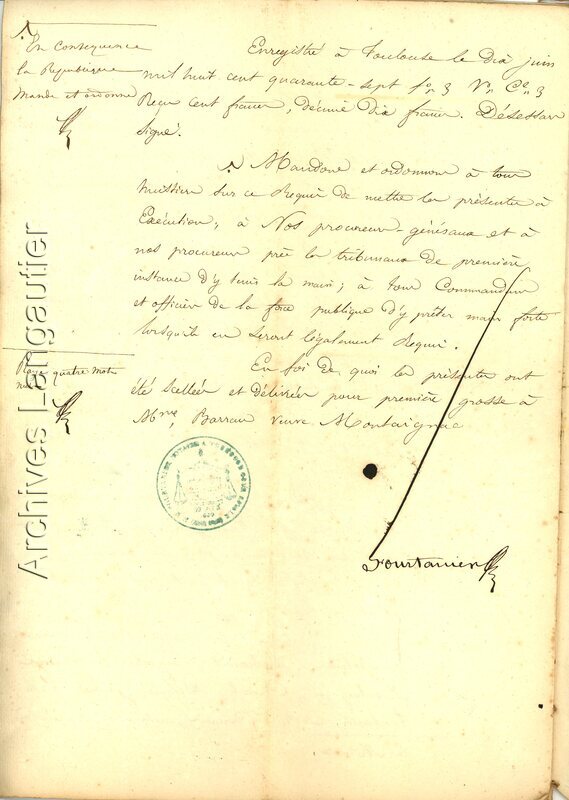 En conséquence
la République
mande et ordonne
Enregistré à Toulouse le dix juin
mil huit cent quarante-sept fo. 3 Vo. Ce. 3
Reçu cent francs, décime dix francs. Désessars
signé.
Mandons et ordonnons à tous
huissiers sur ce Requis de mettre les présentes à
Exécution; à Nos procureurs-généraux et à
nos procureurs près les tribunaux de première
instance d'y tenir la main; à tous Commandans
et officiers de la force publique d'y prêter main forte
lorsqu'ils en seront légalement Requis.
Rayé quatre mots
nuls
En foi de quoi les présentes ont
été scellées et délivrées pour première grosse à
Mme Barrau veuve Montaignac
Fourtanier
Archives Langautier